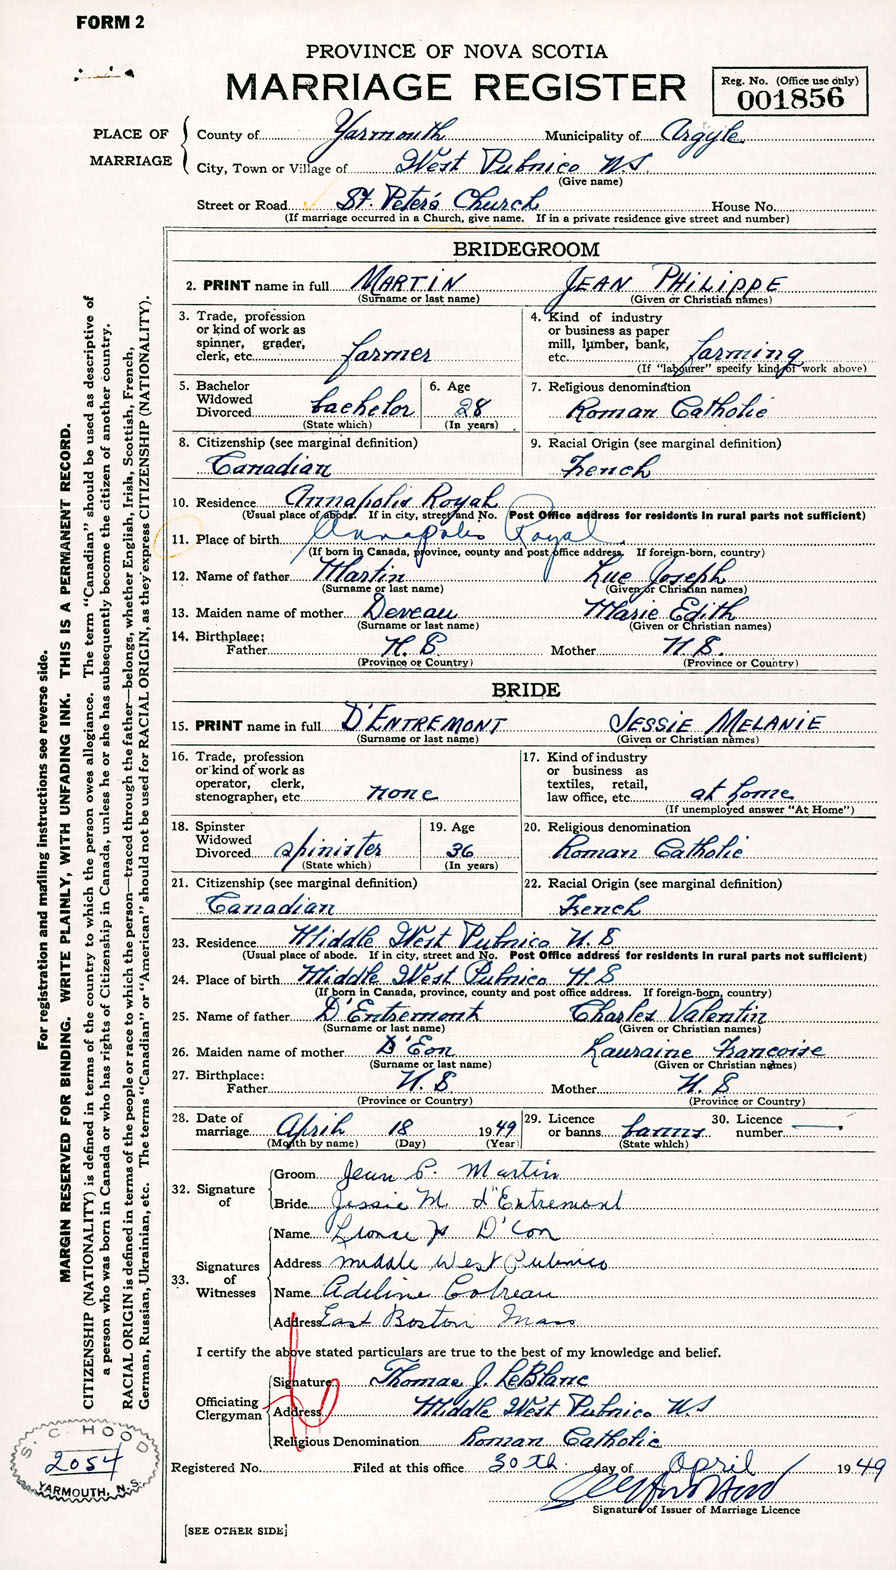 FORM 2
PROVINCE OF NOVA SCOTIA
MARRIAGE REGISTER
Reg. No. (Office use only)
001856
PLACE OF MARRIAGE
County of Yarmouth Municipality of Argyle
City, Town or Village of West Pubnico N.S.
(Give name)
Street or Road St. Peter's Church House No.
(If marriage occurred in a Church, give name. If in a private residence give street and number)
BRIDEGROOM
2. PRINT name in full MARTIN JEAN PHILIPPE
(Surname or last name) (Given or Christian names)
3. Trade, profession or kind of work as spinner, grader, clerk, etc. farmer
4. Kind of industry or business as paper mill, lumber, bank, etc. farming
(If "labourer" specify kind of work above)
5. Bachelor Widowed Divorced bachelor
(State which)
6. Age 28
(In years)
7. Religious denomination
Roman Catholic
8. Citizenship (see marginal definition)
Canadian
9. Racial Origin (see marginal definition)
French
10. Residence Annapolis Royal
(Usual place of abode. If in city, street and No. Post Office address for residents in rural parts not sufficient)
11. Place of birth Annapolis Royal
(If born in Canada, province, county and post office address. If foreign-born, country)
12. Name of father Martin Luc Joseph
(Surname or last name) (Given or Christian names)
13. Maiden name of mother Deveau Marie Edith
(Surname or last name) (Given or Christian names)
14. Birthplace:
Father N.S. Mother N.S.
(Province or Country) (Province or Country)
BRIDE
15. PRINT name in full D'ENTREMONT JESSIE MELANIE
(Surname or last name) (Given or Christian names)
16. Trade, profession or kind of work as operator, clerk, stenographer, etc. none
17. Kind of industry or business as textiles, retail, law office, etc. at home
(If unemployed answer "At Home")
18. Spinster Widowed Divorced spinister
(State which)
19. Age 36
(In years)
20. Religious denomination
Roman Catholic
21. Citizenship (see marginal definition)
Canadian
22. Racial Origin (see marginal definition)
French
23. Residence Middle West Pubnico N.S
(Usual place of abode. If in city, street and No. Post Office address for residents in rural parts not sufficient)
24. Place of birth Middle West Pubnico N.S
(If born in Canada, province, county and post office address. If foreign-born, country)
25. Name of father D'Entremont Charles Valentin
(Surname or last name) (Given or Christian names)
26. Maiden name of mother D'Eon Lauraine Francoise
(Surname or last name) (Given or Christian names)
27. Birthplace:
Father N.S Mother N.S
(Province or Country) (Province or Country)
28. Date of marriage April 18 1949
(Month by name) (Day) (Year)
29. Licence or banns banns
(State which)
30. Licence number
32. Signature of
Groom Jean P. Martin
Bride Jessie M. d'Entremont
33. Signatures of Witnesses
Name D'Eon
Address middle West Pubnico
Name Adeline
Address East Boston Mass
I certify the above stated particulars are true to the best of my knowledge and belief.
Officiating Clergyman
Signature Thomas J. LeBlanc
Address Middle West Pubnico N.S
Religious Denomination Roman Catholic
Registered No. Filed at this office 30th day of April 1949
Signature of Issuer of Marriage Licence
[SEE OTHER SIDE]
For registration and mailing instructions see reverse side.
MARGIN RESERVED FOR BINDING. WRITE PLAINLY, WITH UNFADING INK. THIS IS A PERMANENT RECORD.
CITIZENSHIP (NATIONALITY) is defined in terms of the country to which the person owes allegiance. The term "Canadian" should be used as descriptive of
a person who was born in Canada or who has rights of Citizenship in Canada, unless he or she has subsequently become the citizen of another country.
RACIAL ORIGIN is defined in terms of the people or race to which the person—traced through the father—belongs, whether English, Irish, Scottish, French,
German, Russian, Ukrainian, etc. The terms "Canadian" or "American" should not be used for RACIAL ORIGIN, as they express CITIZENSHIP (NATIONALITY).
S. C. HOOD
2054
YARMOUTH, N.S.